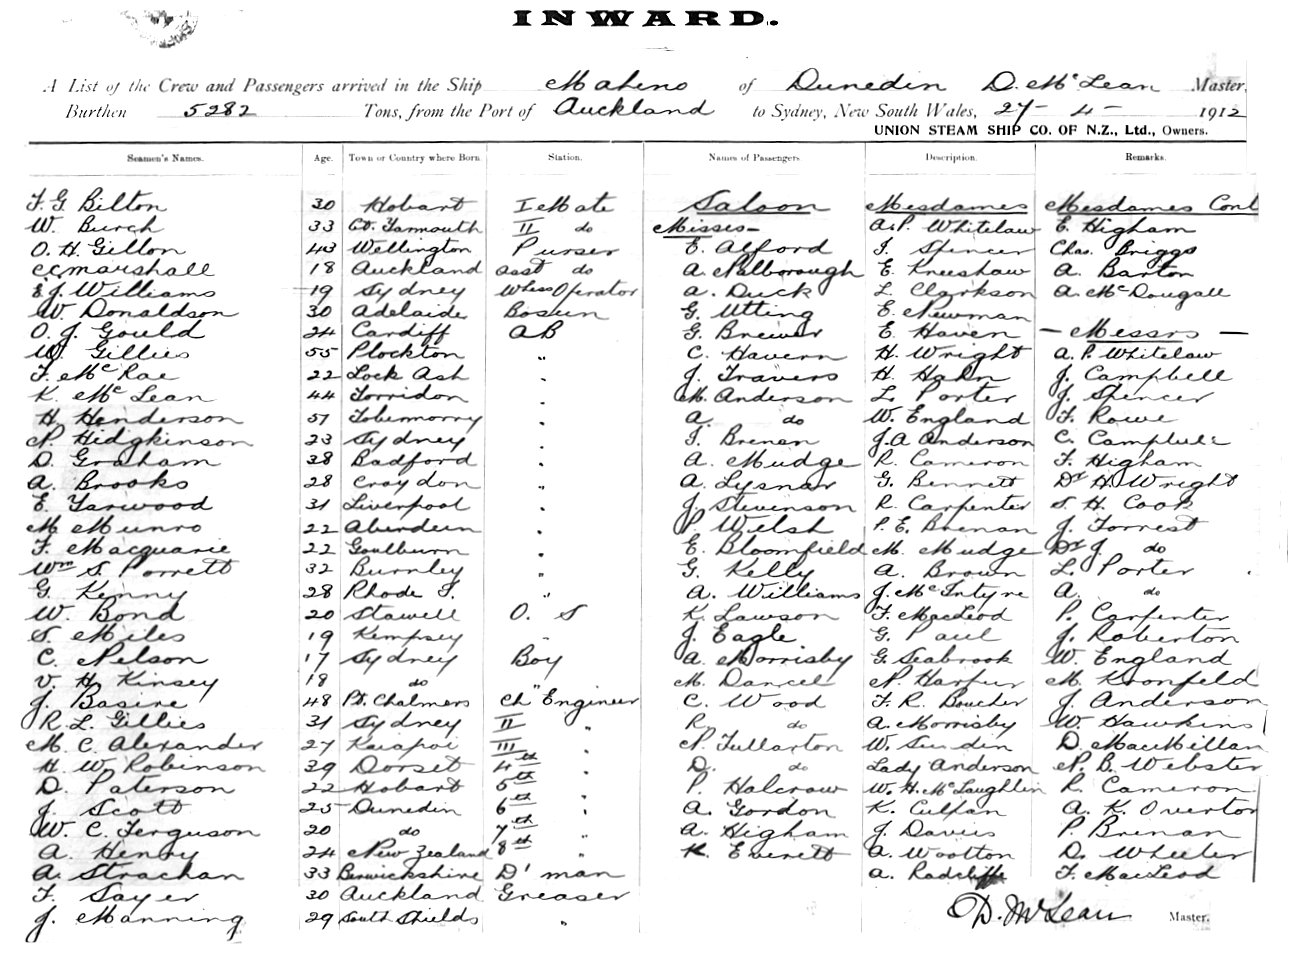 INWARD.
A List of the Crew and Passengers arrived in the Ship Maheno of Dunedin D. McLean Master,
Burthen 5282 Tons, from the Port of Auckland to Sydney, New South Wales, 27 - 4 - 1912
UNION STEAM SHIP CO. OF N.Z., Ltd., Owners.
Seamen's Names. Age. Town or Country where Born Station. Names of Passengers Description. Remarks.
F. G. Bilton 30 Hobart I Mate Saloon Mesdames Mesdames Cont
W. Burch 33 Gt. Yarmouth II do Misses- A. P. Whitelaw E. Higham
O. H. Gillon 43 Wellington Purser E. Alford J. Spencer Chas. Briggs
C C Marshall 18 Auckland asst do A. Melborough E. Kreeshaw A. Barton
E. J. Williams 19 Sydney Wless Operator A. Duck L. Clarkson A. McDougall
W. Donaldson 30 Adelaide Bosun G. Utting E. Newman
O. J. Gould 24 Cardiff AB G. Brewer E. Haven - Messrs -
W. Gillies 55 Plockton " C. Havern H. Wright A. P. Whitelaw
F. McRae 22 Lock Ash " J. Travers H. Hahn J. Campbell
K. McLean 44 Torridon " M. Anderson L. Porter J. Spencer
H. Henderson 51 Tobermorry " A. do W. England F. Rowe
N. Hidgkinson 23 Sydney " J. Brenan J. A Anderson C. Campbell
D. Graham 38 Badford " A. Mudge R. Cameron F. Higham
A. Brooks 28 Croydon " A. Lysnar G. Bennett Dr H. Wright
E. Yarwood 31 Liverpool " J. Stevenson R. Carpenter S. H. Cook
M. Munro 22 Aberdeen " P. Welsh P. E. Brenan J. Forrest
F. Macquarie 22 Goulburn " E. Bloomfield M. Mudge Dr J. do
Wm S. Porrett 32 Burnley " G. Kelly A. Brown L. Porter
G. Kenny 28 Rhode I. " A. Williams J. McIntyre A. do
W. Bond 20 Stawell O. S K. Lawson F. MacLeod P. Carpenter
S. Miles 19 Kempsey " J. Eagle G. Paul J. Roberton
C. Nelson 17 Sydney Boy A. Morrisby G. Seabrook W. England
V. H. Kinsey 18 do M. Dancel N. Harper M. Kronfeld
J. Basire 48 Pt. Chalmers Ch " Engineer C. Wood F. R. Boucher J. Anderson
R. L. Gillies 31 Sydney II " R. do A. Morrisby W Hawkins
M. C. Alexander 27 Kaiapoi III " N. Fullarton W. Sunden D. MacMillan
H. W. Robinson 29 Dorset 4th " D. do Lady Anderson N. B. Webster
D. Paterson 22 Hobart 5th " P. Halcrow W. H. McLaughlin R. Cameron
J. Scott 25 Dunedin 6th " A. Gordon K. Culpan A. K. Overton
W. C. Ferguson 20 do 7th " A. Higham J. Davies P. Brenan
A. Henry 24 New Zealand 8th " K. Everett A. Wootton D. Wheeler
A. Strachan 33 Berwickshire D' man A. Radcliffe F. MacLeod
F. Sayer 30 Auckland Greaser
J. Manning 29 South Shields " D. McLean Master.